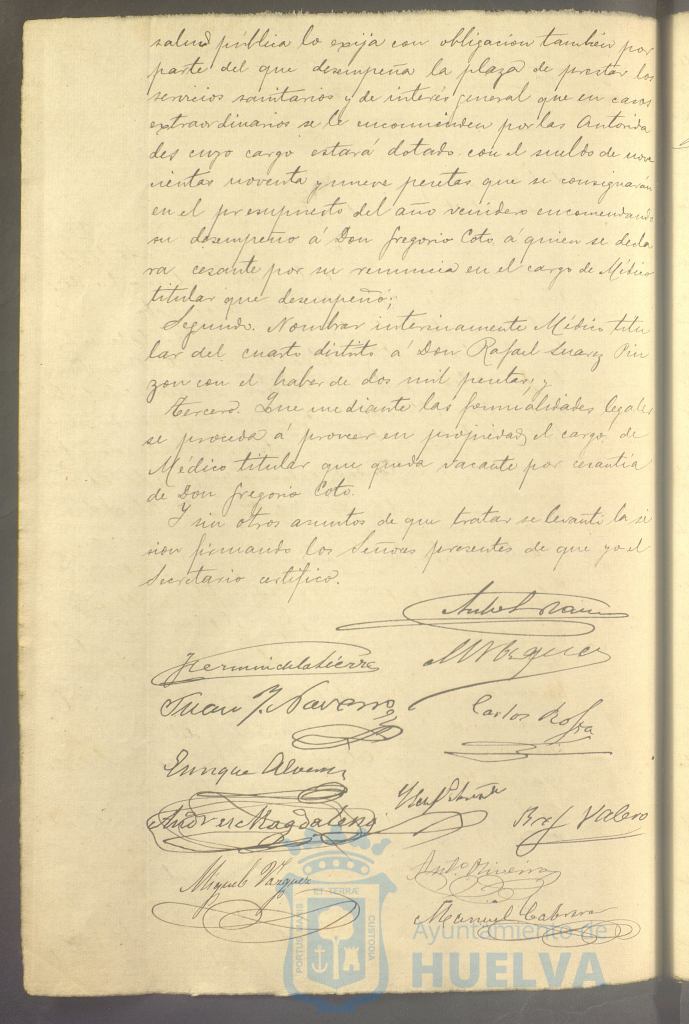 salud pública lo exija con obligacion tambien por
parte del que desempeña la plaza de prestar los
servicios sanitarios y de interés general que en casos
extraordinarios se le encomienden por las Autorida
des cuyo cargo estará dotado con el sueldo de nove
cientas noventa y nueve pesetas que se consignarán
en el presupuesto del año venidero encomendando
su desempeño á Don Gregorio Coto á quien se decla
ra cesante por su renuncia en el cargo de Médico
titular que desempeñó;
Segundo. Nombrar interinamente Médico titu
lar del cuarto distrito á Don Rafael Suarez Pin
zon con el haber de dos mil pesetas; y
Tercero. Que mediante las formalidades legales
se proceda á proveer en propiedad el cargo de
Médico titular que queda vacante por cesantía
de Don Gregorio Coto.
Y sin otros asuntos de que tratar se levantó la se
sion firmando los Señores presentes de que yo el
Secretario certifico.
Fermin de la Sierra
M Vazquez
Juan J. Navarro
Carlos
Enrique
Andres Magdaleno
Valero
Miguel Vazquez
Oliveira
Manuel Cabrera
PORTUS MARIS ET TERRÆ CUSTODIA
Ayuntamiento de
HUELVA